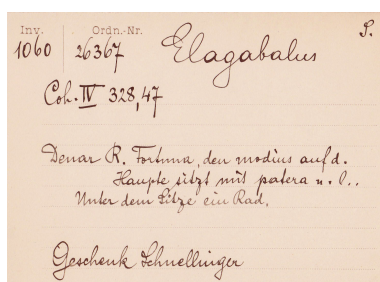 Inv. Ordn.-Nr. S.
1060 26367 Elagabalus
Coh. IV 328,47
Denar R. Fortuna, den modius auf d.
Haupte sitzt mit patera u.
Unter dem Sitze ein Rad.
Geschenk Schnellinger